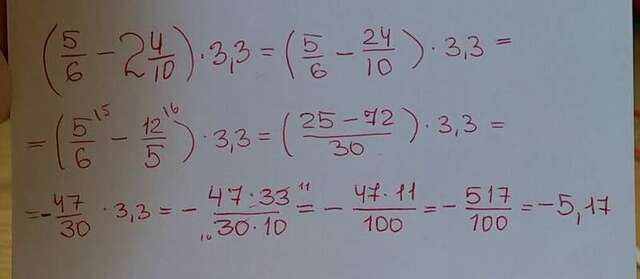 (5/6 - 2 4/10) · 3,3 = (5/6 - 24/10) · 3,3 =
= (5/6 ¹⁵ - 12/5 ¹⁶) · 3,3 = ((25 - 72)/30) · 3,3 =
= - 47/30 · 3,3 = - (47 · 33 ¹¹)/(₁₀ 30 · 10) = - (47 · 11)/100 = - 517/100 = -5,17